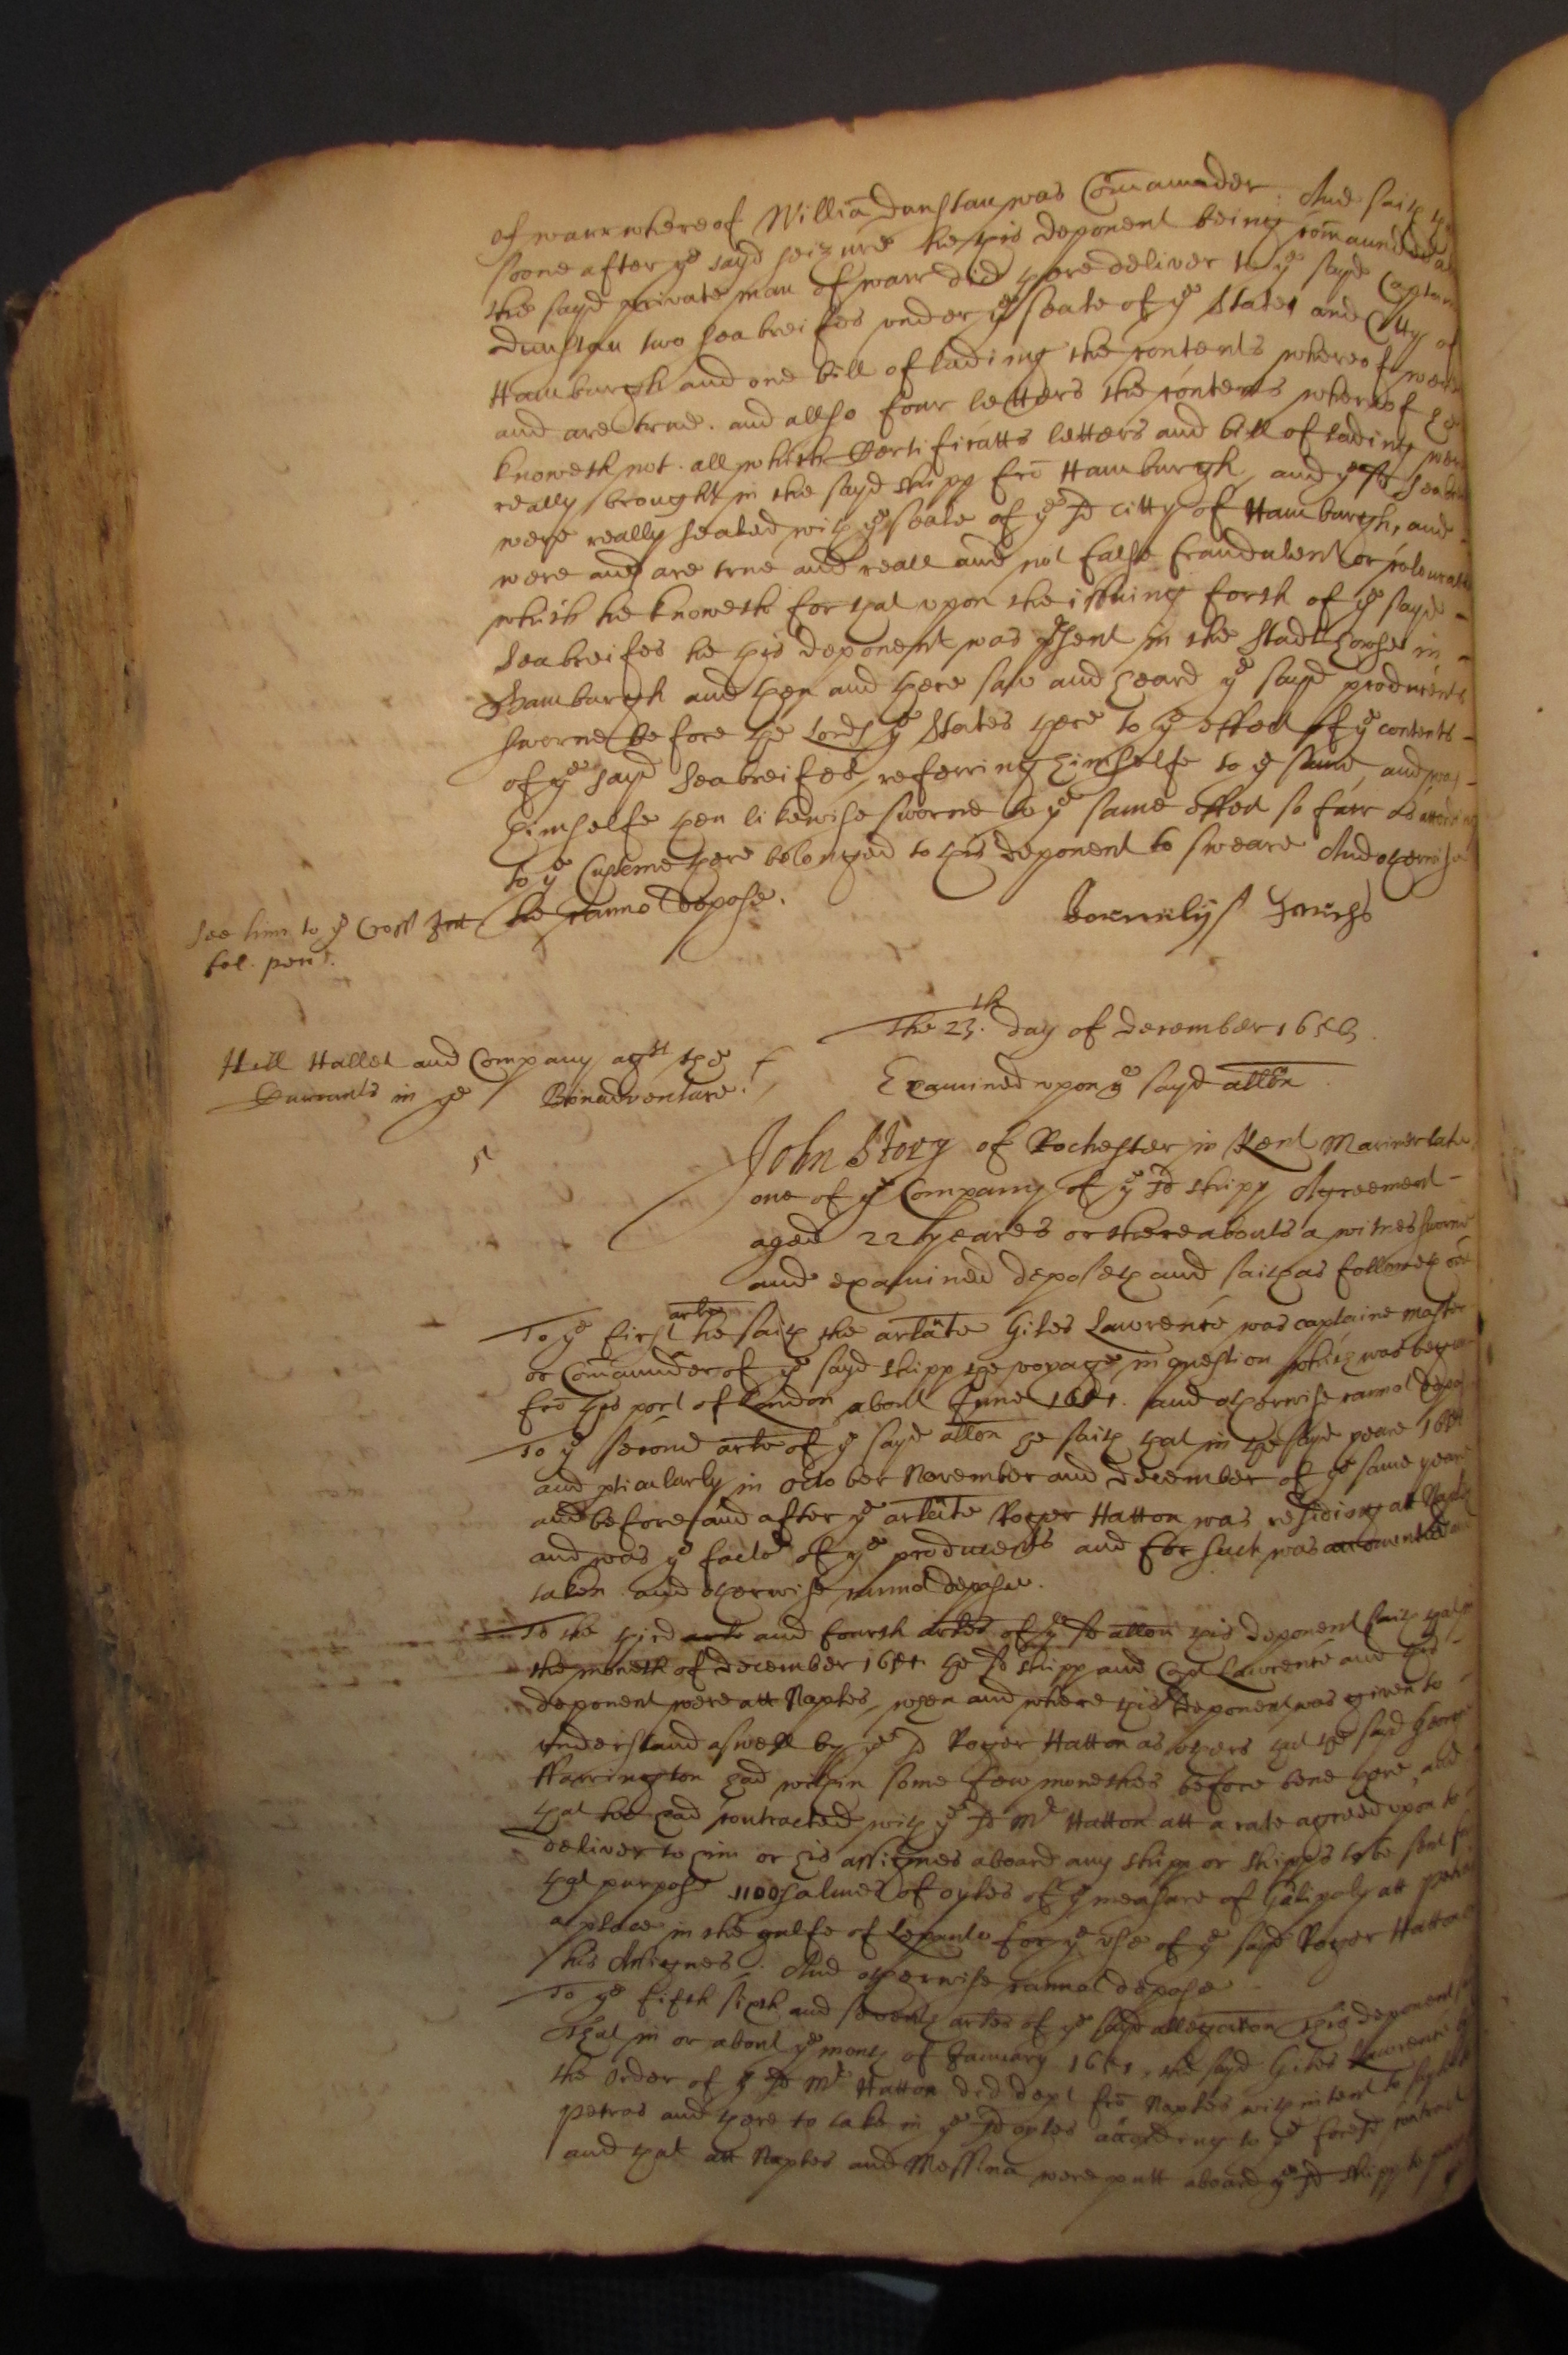 of warr whereof Williã Dunstan was Com̃aunder. And saith yt
soone after ye sayd seizure he this deponent being com̃aunded
the sayd private man of warr did there deliver to ye sayd Captain
Dunstan two seabreifes under ye seale of ye States and Citty of
Hamburgh and one bill of lading the contents whereof were
and are true. and allso four letters the contents whereof he
knoweth not. all which Certificatts letters and bill of lading were
really brought in the sayd shipp frõ Hamburgh, and ye sd
were really sealed with ye seale of ye sd citty of Hamburgh, and
were and are true and reall and not false fraudulent or
which he knoweth for that upon the issuing forth of ye sayd -
Seabreifes he this deponent was pñsent in the Stadthouse in -
Hamburgh and then and there saw and heard ye sayd producents
sworne before the Lords ye States there to ye effect of ye contents -
of ye sayd seabreifes, referring himselfe to ye same, and was -
himselfe then likewise sworne to ye same effect so farr as
to ye Custome there belonged to this deponent to sweare And otherwise
he cannot depose.
see him to ye Cross Int
fol. pend.
The 23.th day of December 1653.
Hill Hallet and Company agst the
Currants in ye Bonadventure.
Examined upon ye sayd allõn
5
John Story of Rochester in Kent Mariner late
one of ye Company of ye sd shipp Agreement -
aged 22 yeares or thereabouts a witnes sworne
and examined deposeth and saith as followeth
To ye first arle he saith the arlãte Giles Lawrence was captaine master
or Com̃aunder of ye sayd shipp the voyage in question which was begun
frõ this port of London about June 1651. and otherwise cannot depose
To ye second arle of ye sayd allõn he saith that in the sayd yeare 1651
and pticularly in October November and December of ye same yeare
and before and after ye arlãte Roger Hatton was residing att Naples
and was ye factor of ye producents and for such was accounted and
taken. and otherwise cannot depose.
To the third arle and fourth arles of ye sd allõn this deponent saith that in
the moneth of December 1651 the sd shipp and Capt Lawrence and this
deponent were att Naples, when and where this deponent was given to
understand aswell by ye sd Roger Hatton as others that the sayd George
Warrington had within some few monethes before bene there, and
that hee had contracted with ye sd Mr Hatton att a rate agreed upon to
deliver to him or his assignes aboard any shipp or shipps to be sent for
that purpose 1100 salmes of oyles of ye measure of Galipoly att Petras
a place in the gulfe of Lepanto for ye use of ye sayd Roger Hatton
his Assignes. And otherwise cannot depose
To ye fifth sixth and seventh arles of ye sayd allegation this deponent
that in or about ye month of January 1651, the sayd Giles Lawrence by
the order of ye sd Mr Hatton did dept frõ Naples with intent to
Petras and there to take in ye sd oyles according to ye foresd contract
and that att Naples and Messina were putt aboard ye sd shipp to